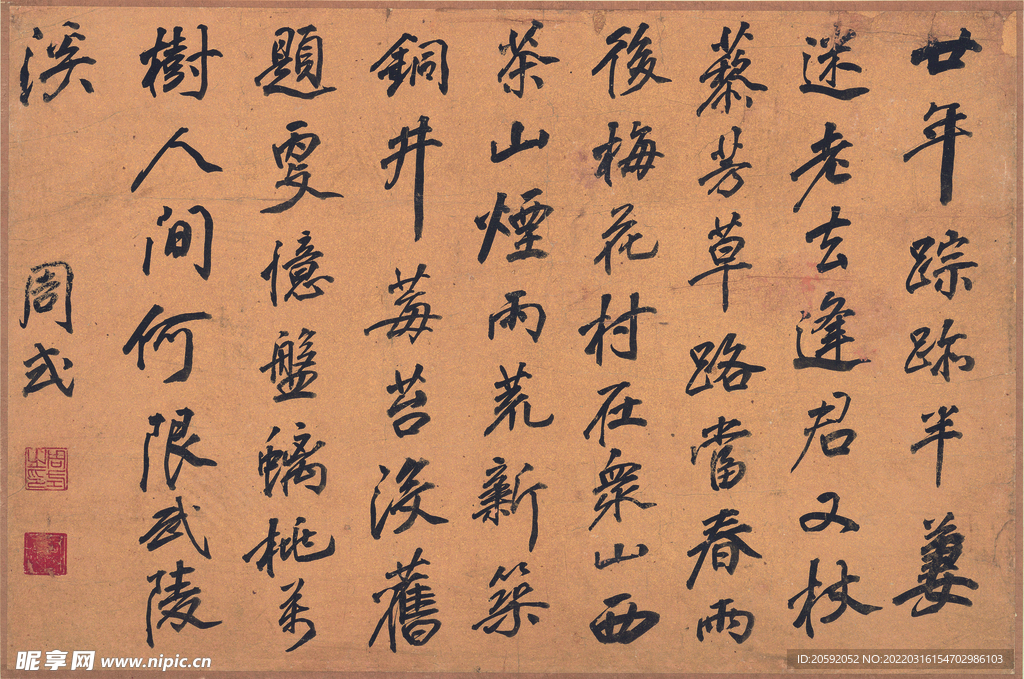 廿年踪跡半萋
迷老去逢君又杖
藜芳草路當春雨
後梅花村在衆山西
茶山煙雨荒新築
銅井莓苔沒舊
題更憶盤螭桃萬
樹人间何限武陵
溪
周式
昵享网 www.nipic.cn
ID:20592052 NO:20220316154702986103